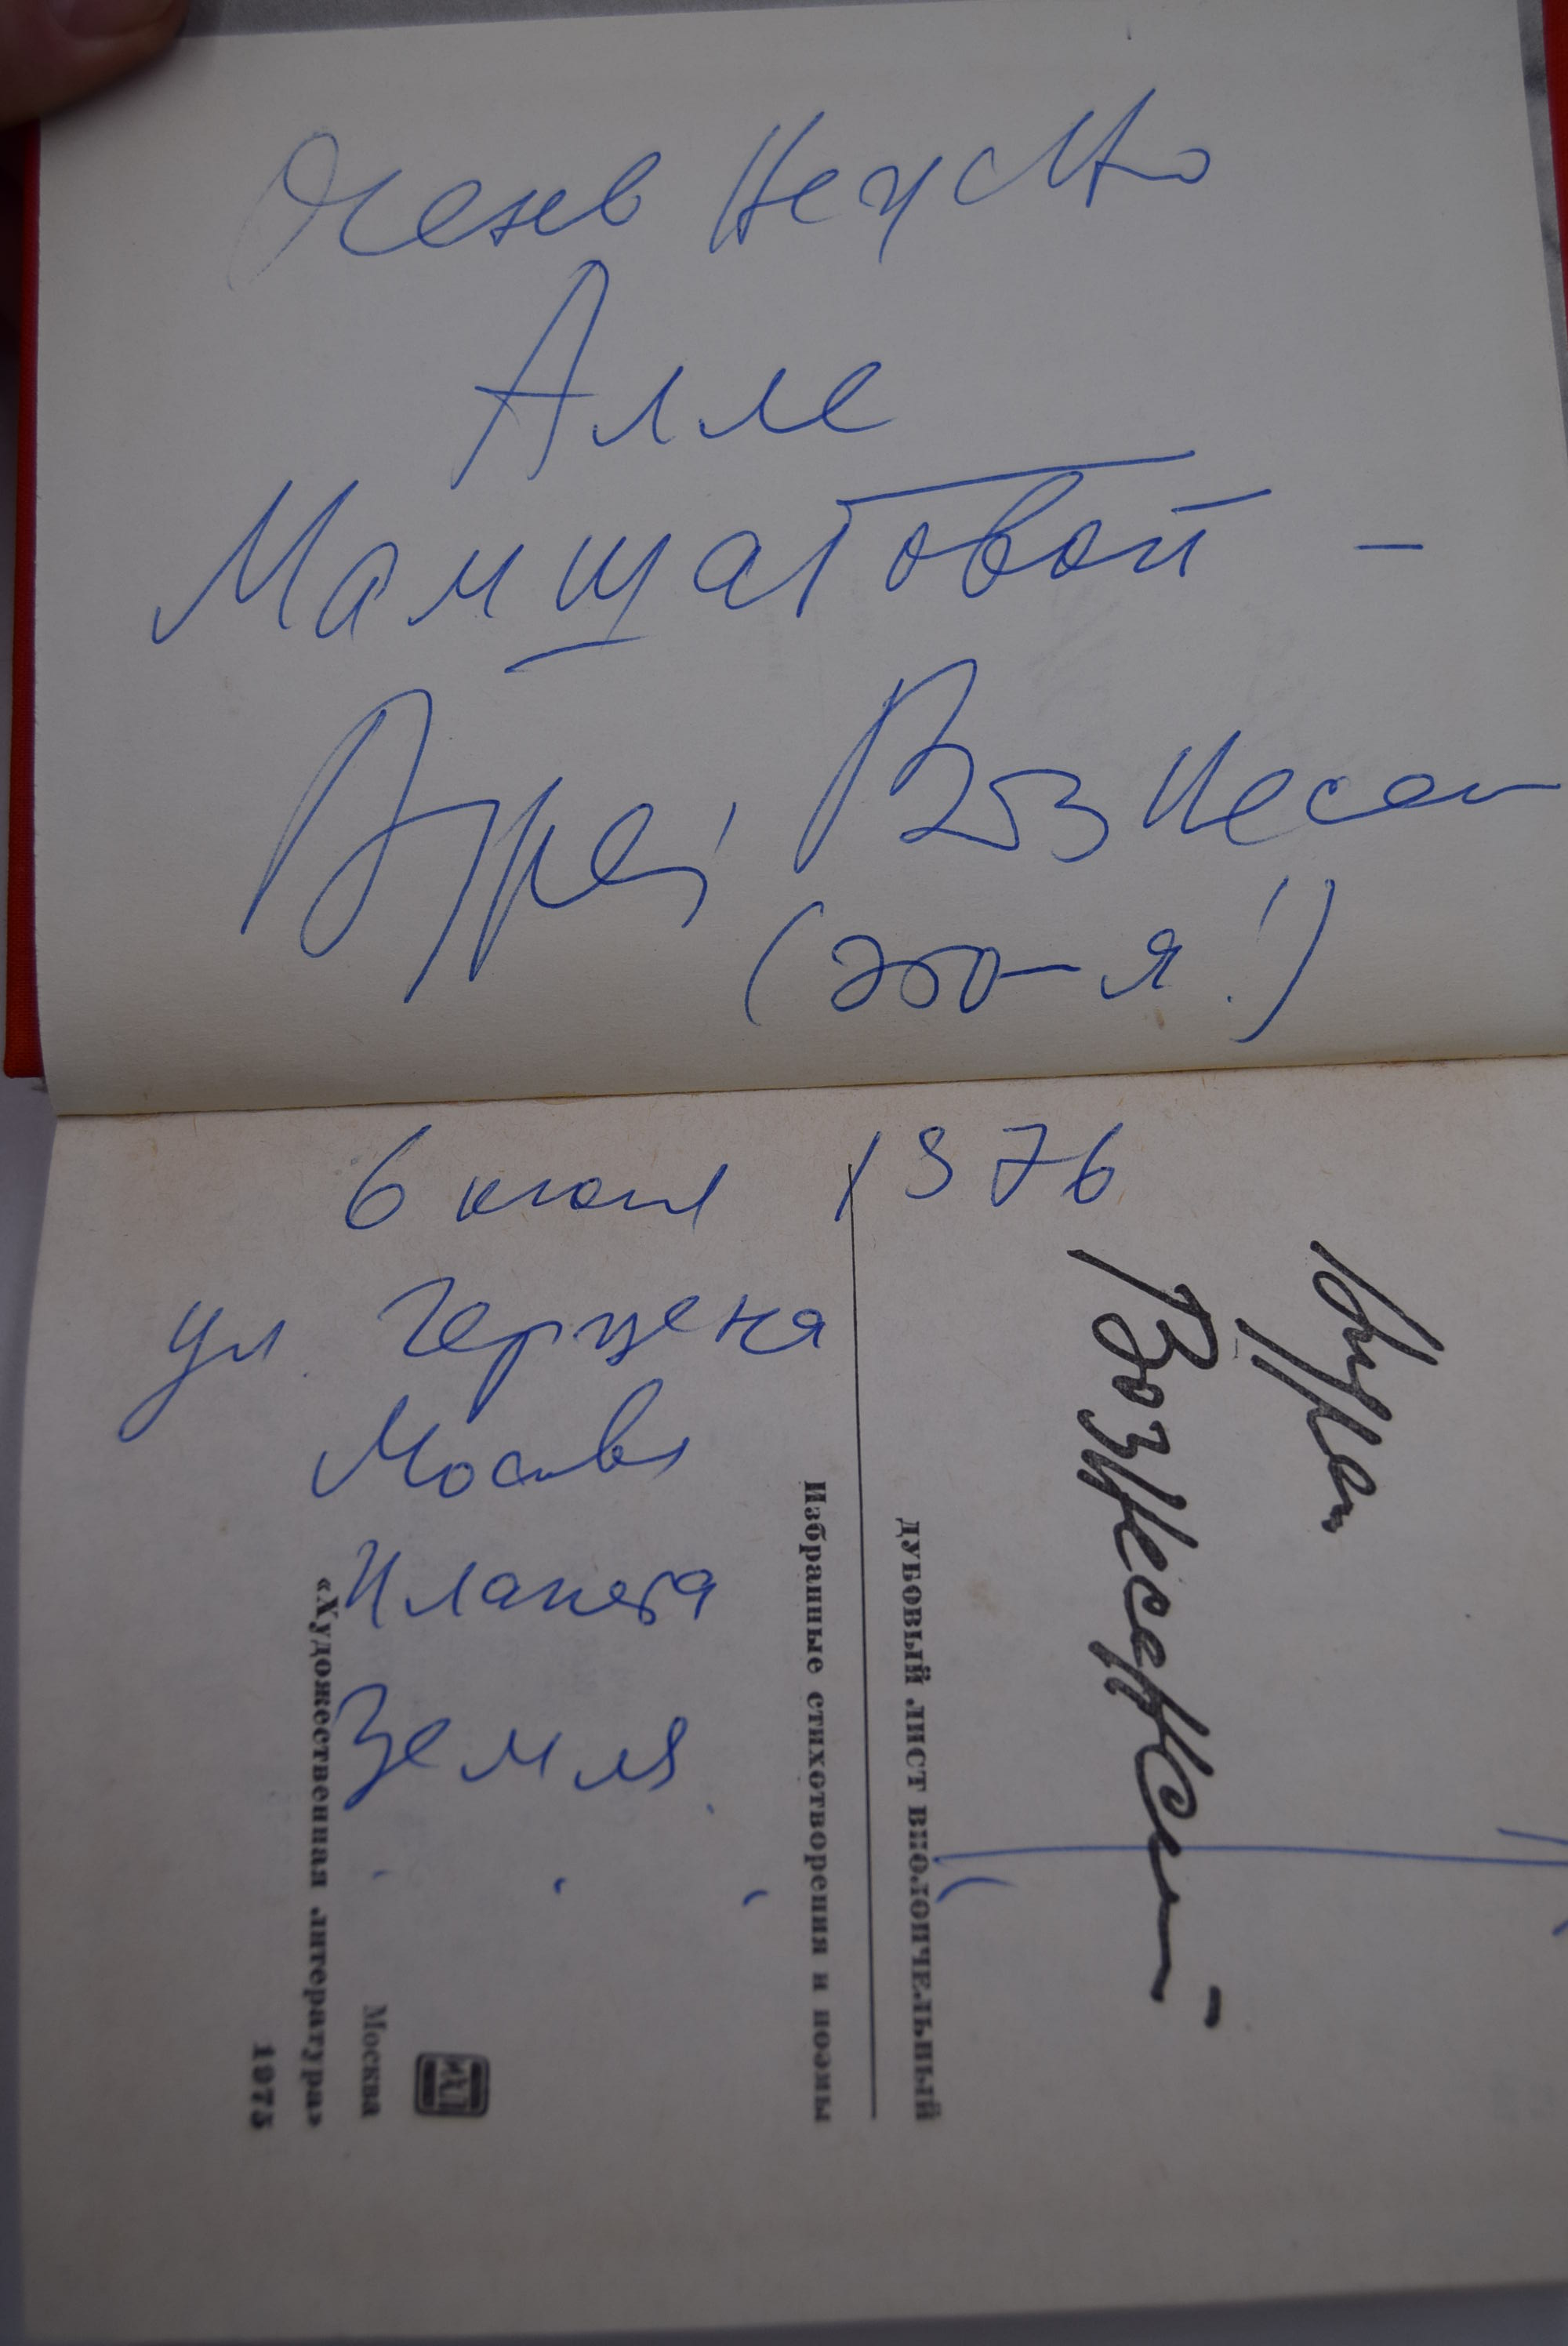 Очень неустно
Алле
Мамщатовой –
Андрей Вознесен
(это – я!)
6 июля 1976
ул Герцена
Москва
Планета
Земля
Андрей
Вознесенский
ДУБОВЫЙ ЛИСТ ВИОЛОНЧЕЛЬНЫЙ
Избранные стихотворения и поэмы
Москва
«Художественная литература»
1975